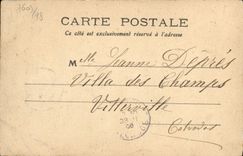 7603/18
CARTE POSTALE
Ce côté est exclusivement réservé à l'adresse
Mlle Jeanne Déprés
Villa des Champs
Villerville
Calvados